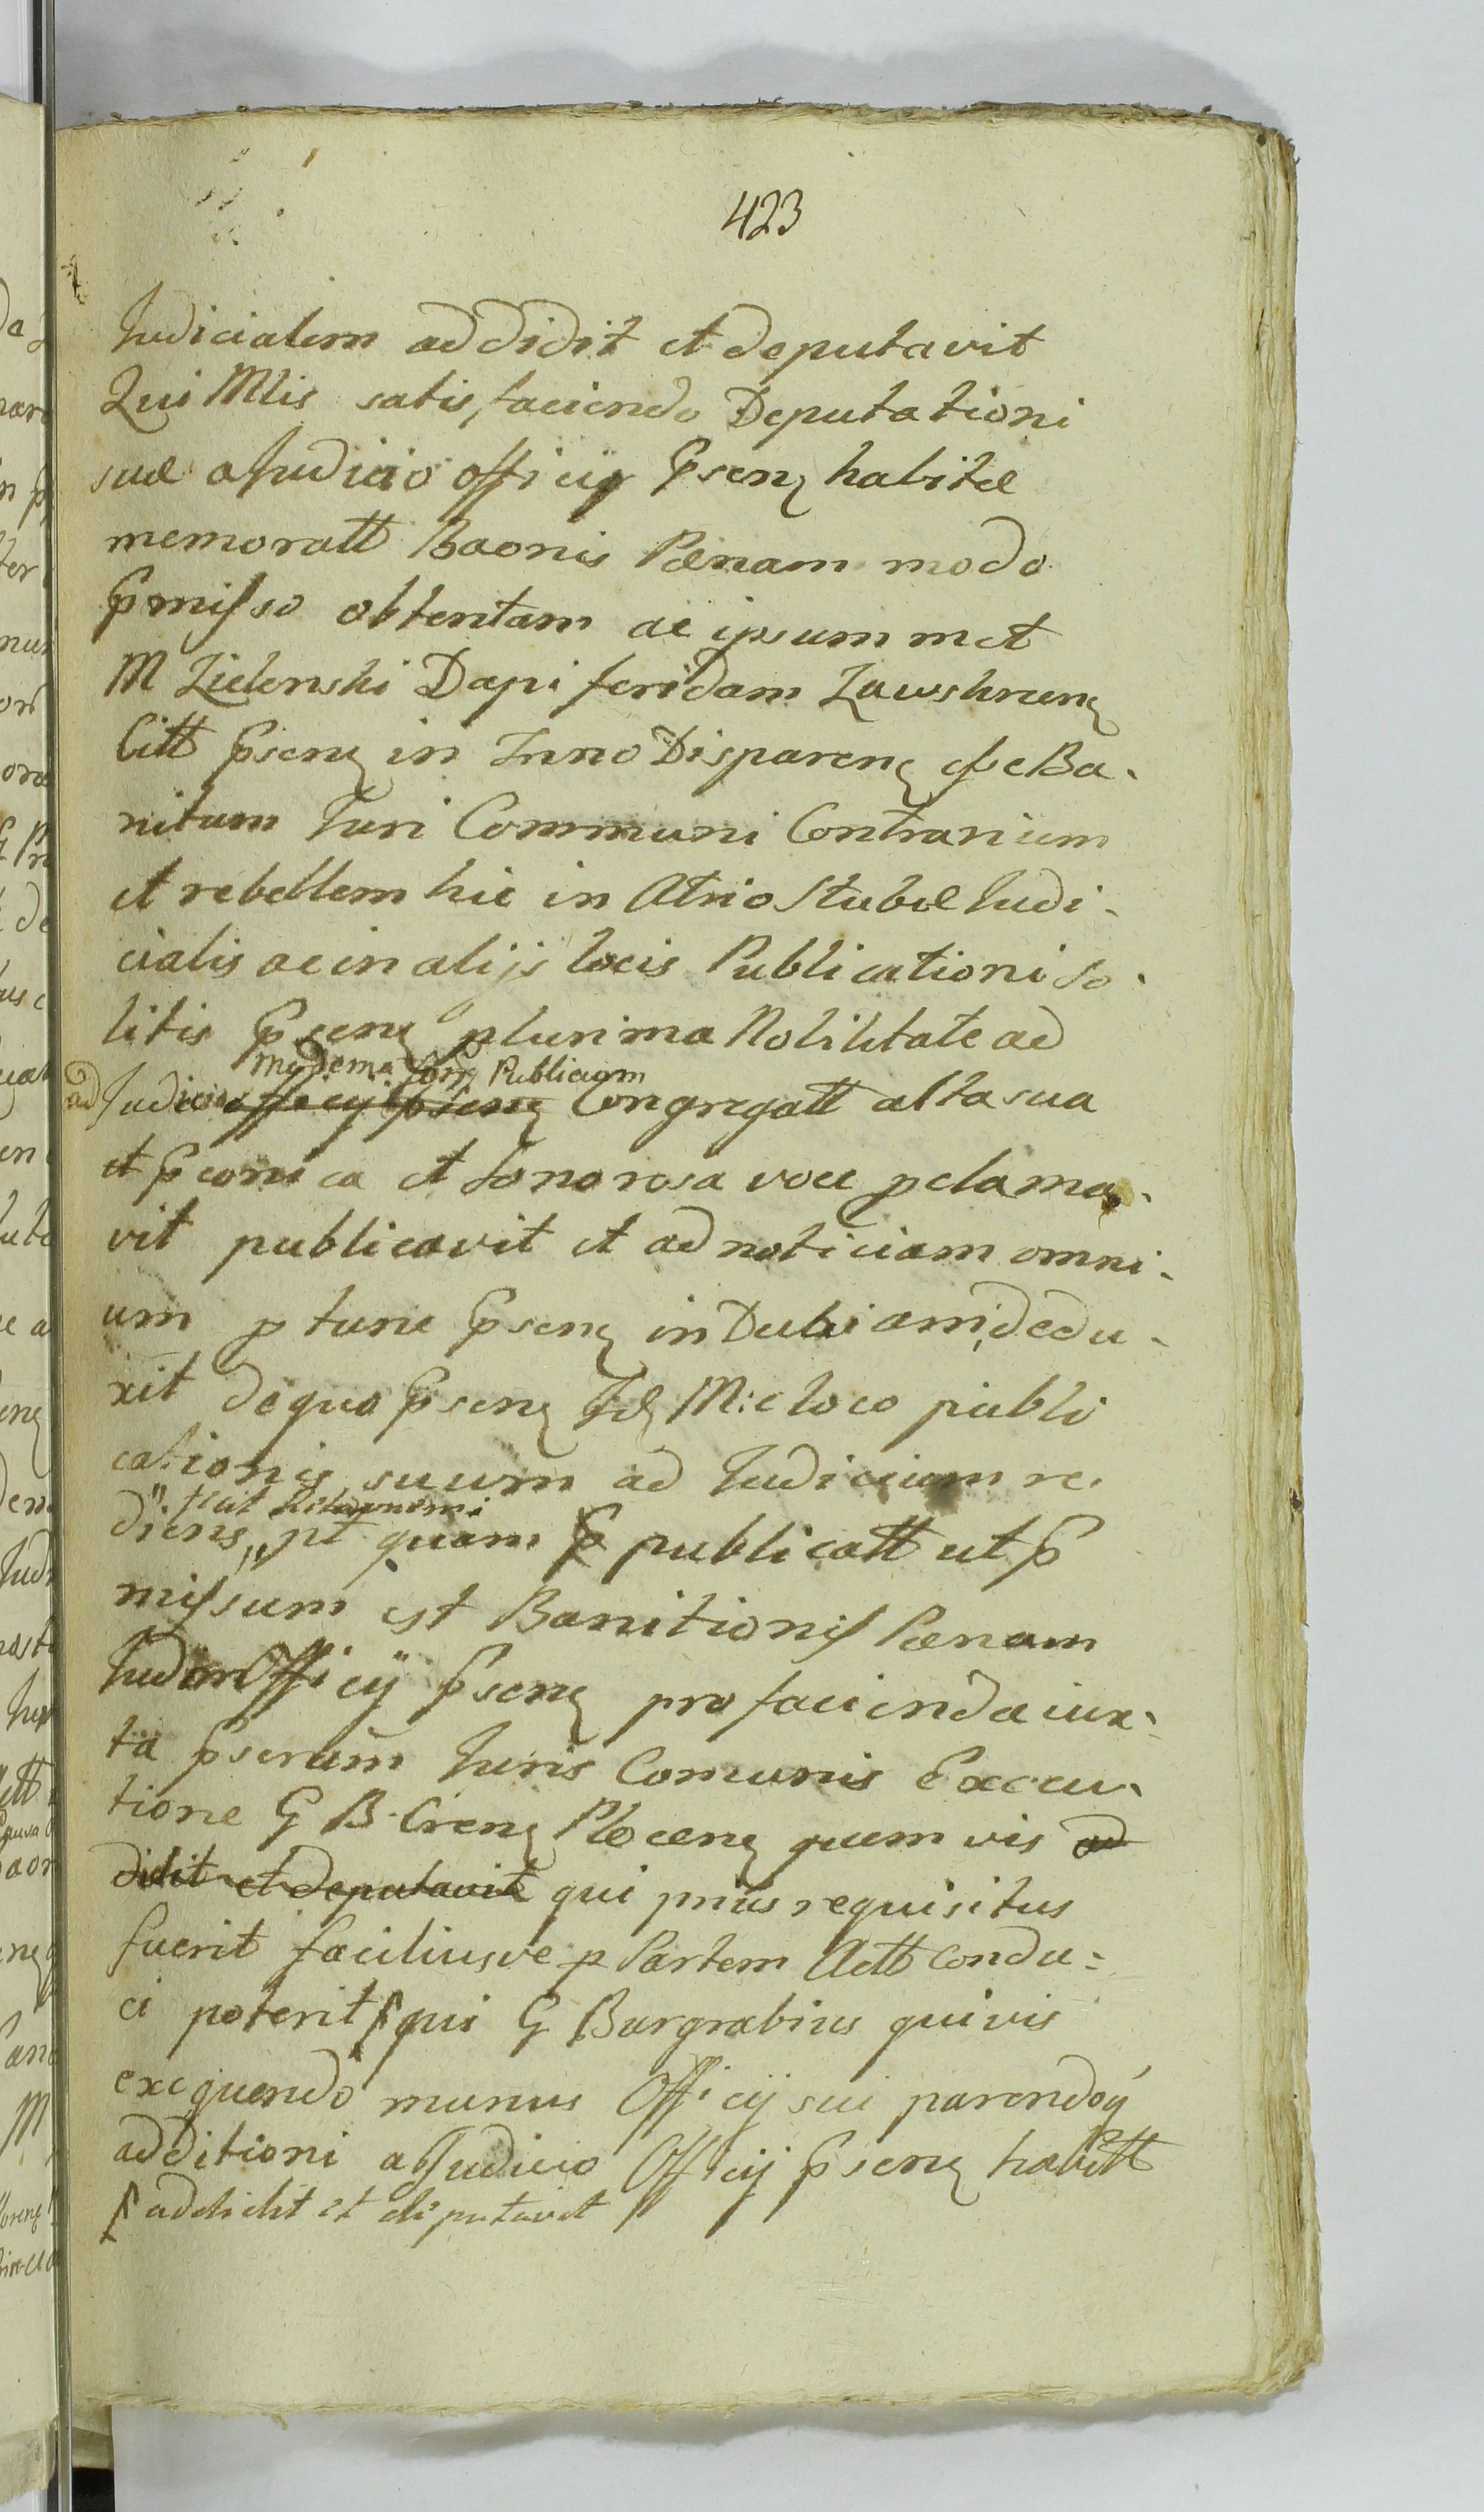 423
Judicialem addidit et deputavit
Qui Mlis satis faciendo Deputationi
suæ a Judicio officij Pnsenq habitæ
memoratt Baonis Pænam modo
Pmisso obtentam ac ipsum met
M Zielenski Dapiferidam Zawskrzenq
Citt Psenq in Inno Disparenq esse Ba-
nitum Juri Communi Contrarium
et rebellem hic in Atrio Stubæ Judi-
cialis ac in alijs locis Publicationi so-
litis Psenq plurima Nobilitate ad
moderna Publicam
ad Judicia officij Psenq Congregatt alta sua
et Pconica et sonorosa voce pclama-
vit publicavit et ad noticiam omni-
um p tunc Psenq in Dubiam dedu-
xit de qua Psenq Idq M: e loco publi
cationis suum ad Judicium re-
fecit Relaonem
diens pt quam P publicatt ut P
missum est Banitionis Pænam
Judm Officij Psenq pro facienda iux-
ta Pserum Juris Comunis Execu-
tione G B. Crenq Plocenq quem vis ad
didit et deputavit qui prius requisitus
fuerit faciliusve p Partem Actt condu-
ci poterit qui G Burgrabius quivis
exequendo munus Officij sui parendoq
additioni a Judicio Officij Psenq habitt
addidit et deputavit